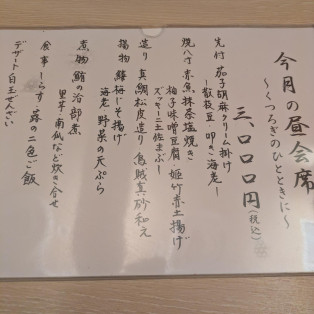 今月の昼会席
〜くつろぎのひとときに〜
三、〇〇〇円(税込)
先付 茄子胡麻クリーム掛け
―散枝豆 叩き海老―
焼八寸 赤魚抹茶塩焼き
柚子味噌豆腐・姫竹赤土揚げ
ズッキーニ土佐まぶし
造り 真鯛松皮造り 烏賊真砂和え
揚物 鱧梅じそ揚げ
海老 野菜の天ぷら
煮物 鮪の治部煮
里芋 南瓜など炊き合せ
食事 しらす・蕗の二色ご飯
デザート 白玉ぜんざい